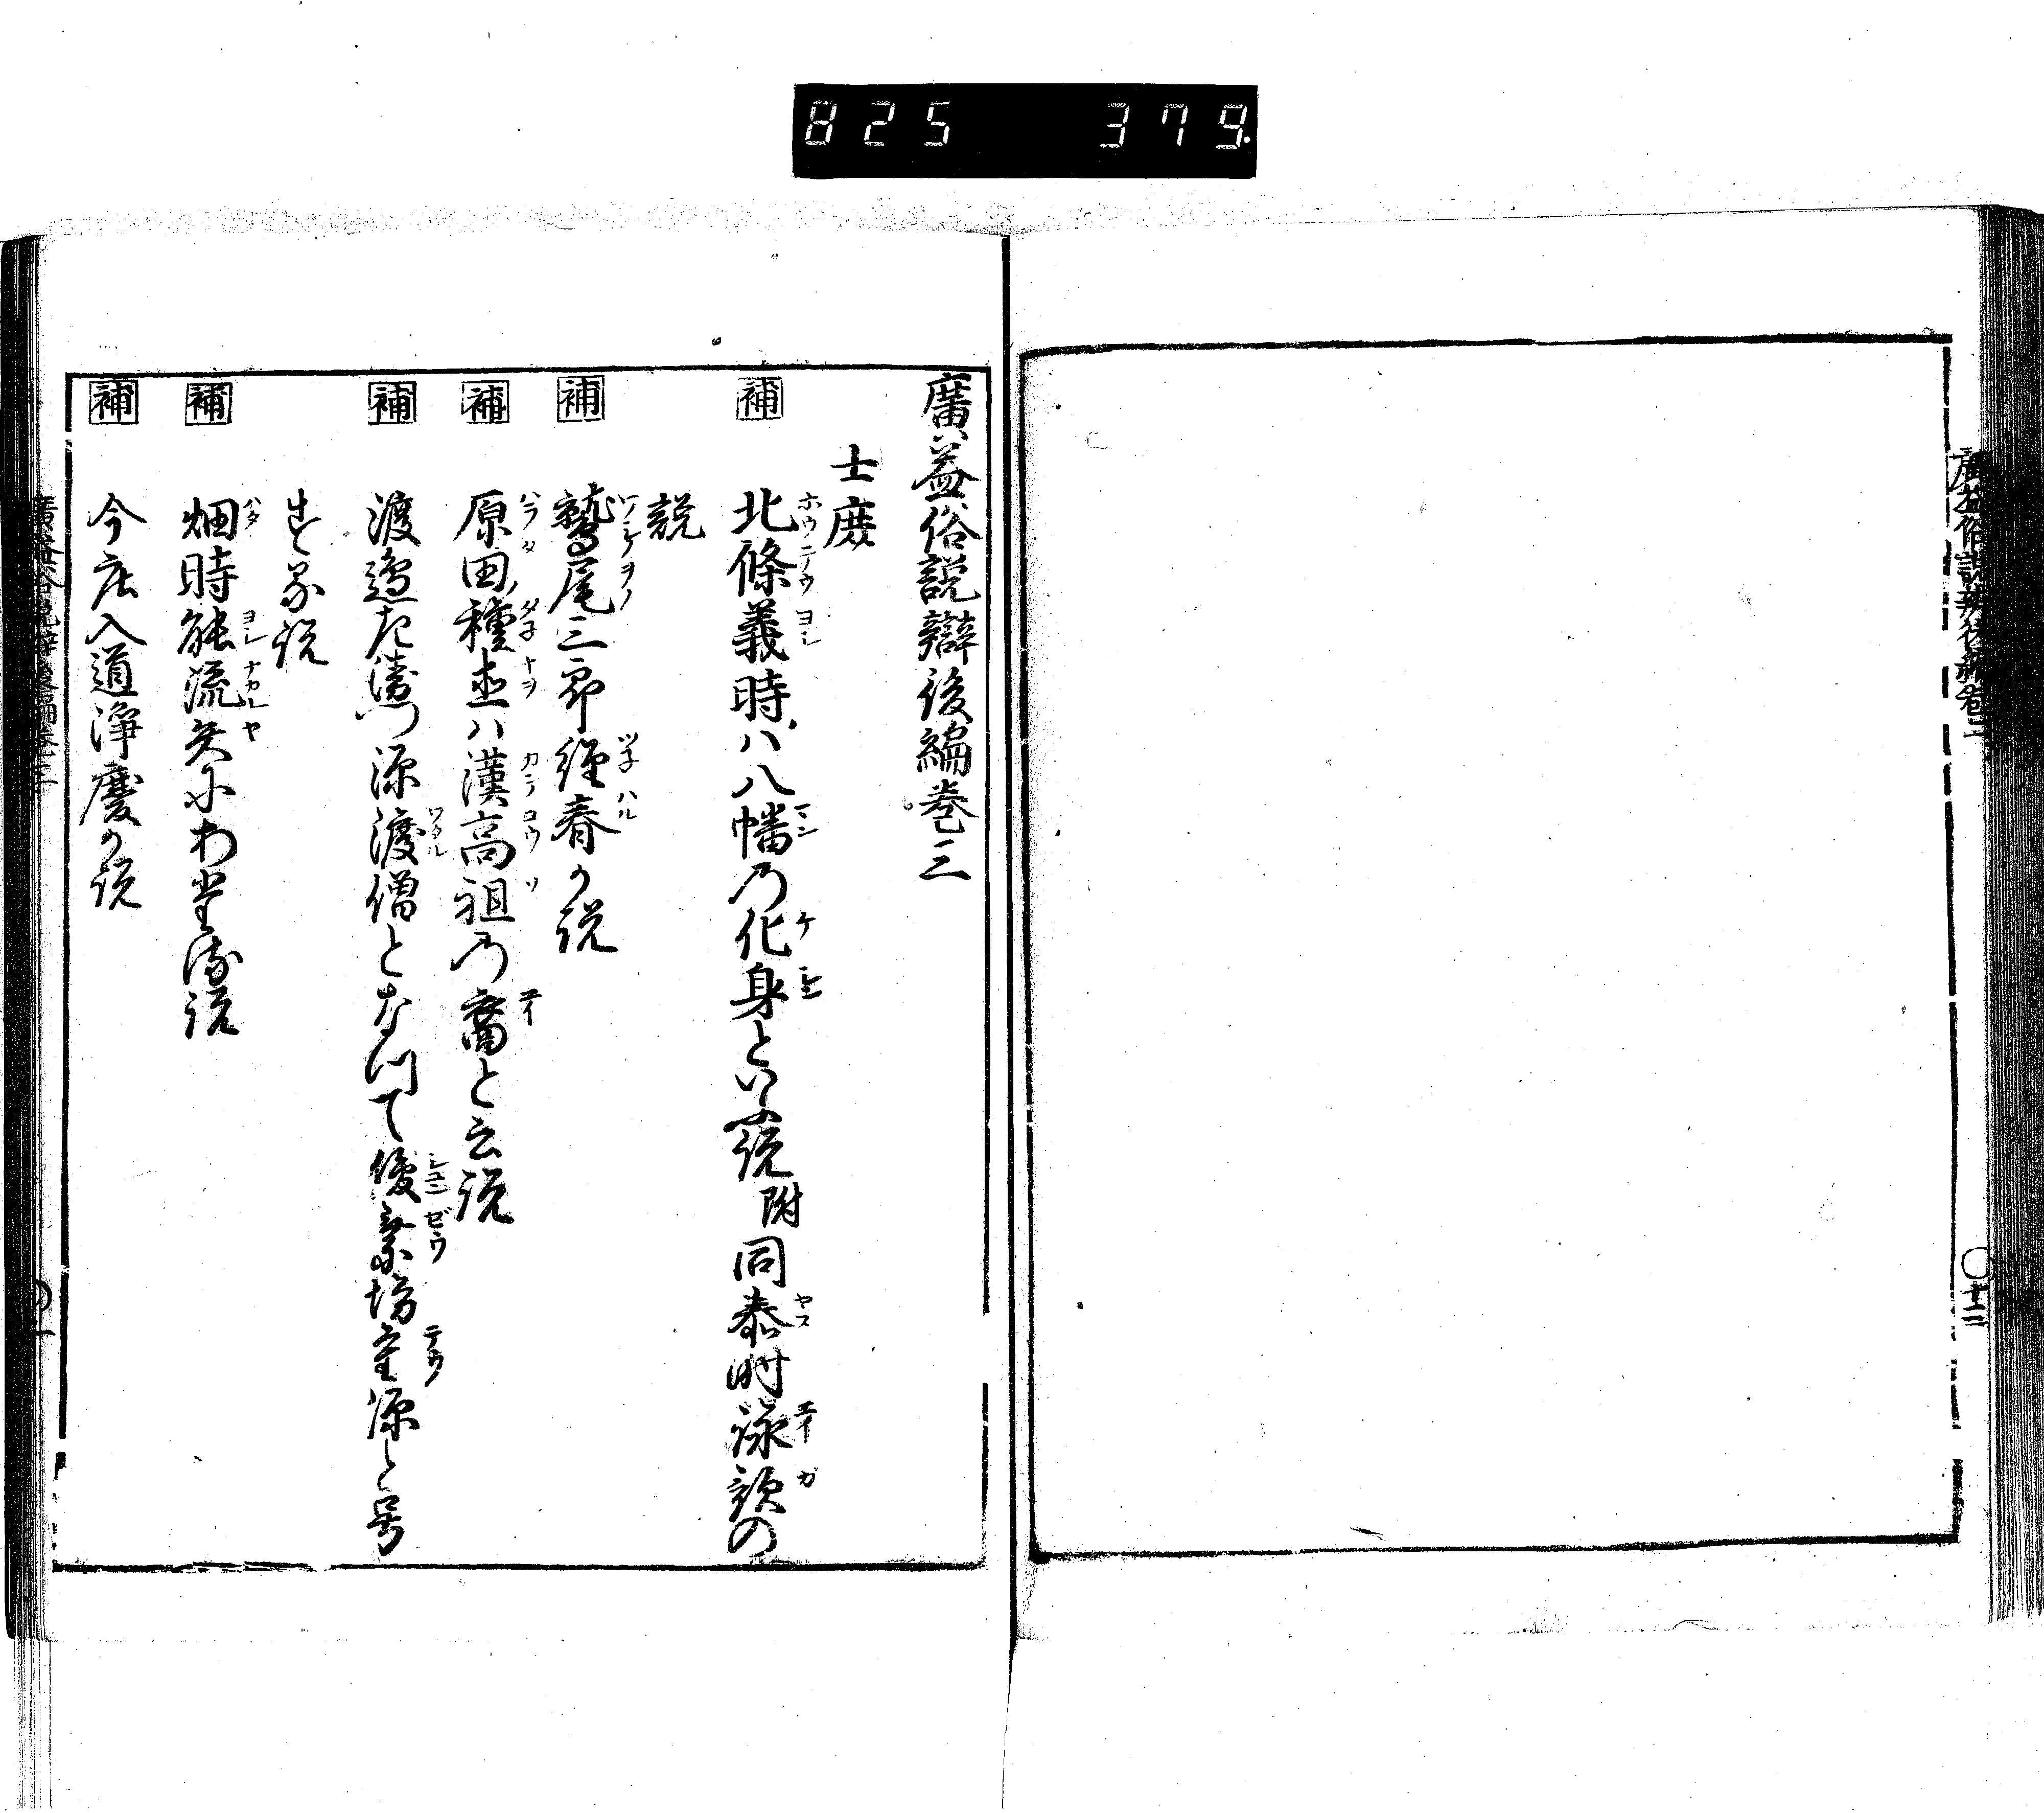 825 379.
廣益俗説辯後編巻二
○十二
廣益俗説辯後編巻三
士庶
補 北條義時ハ八幡乃化身といふ説附同泰時詠歌の
説
補 鷲尾三郎経春う説
補 原田種直ハ漢高祖乃裔と云説
補 渡邉左衛門源渡僧となつて俊乗坊重源と号
する説
補 畑時能流矢にあたる説
補 今庄入道浄慶う説
廣益俗説辯後編巻三